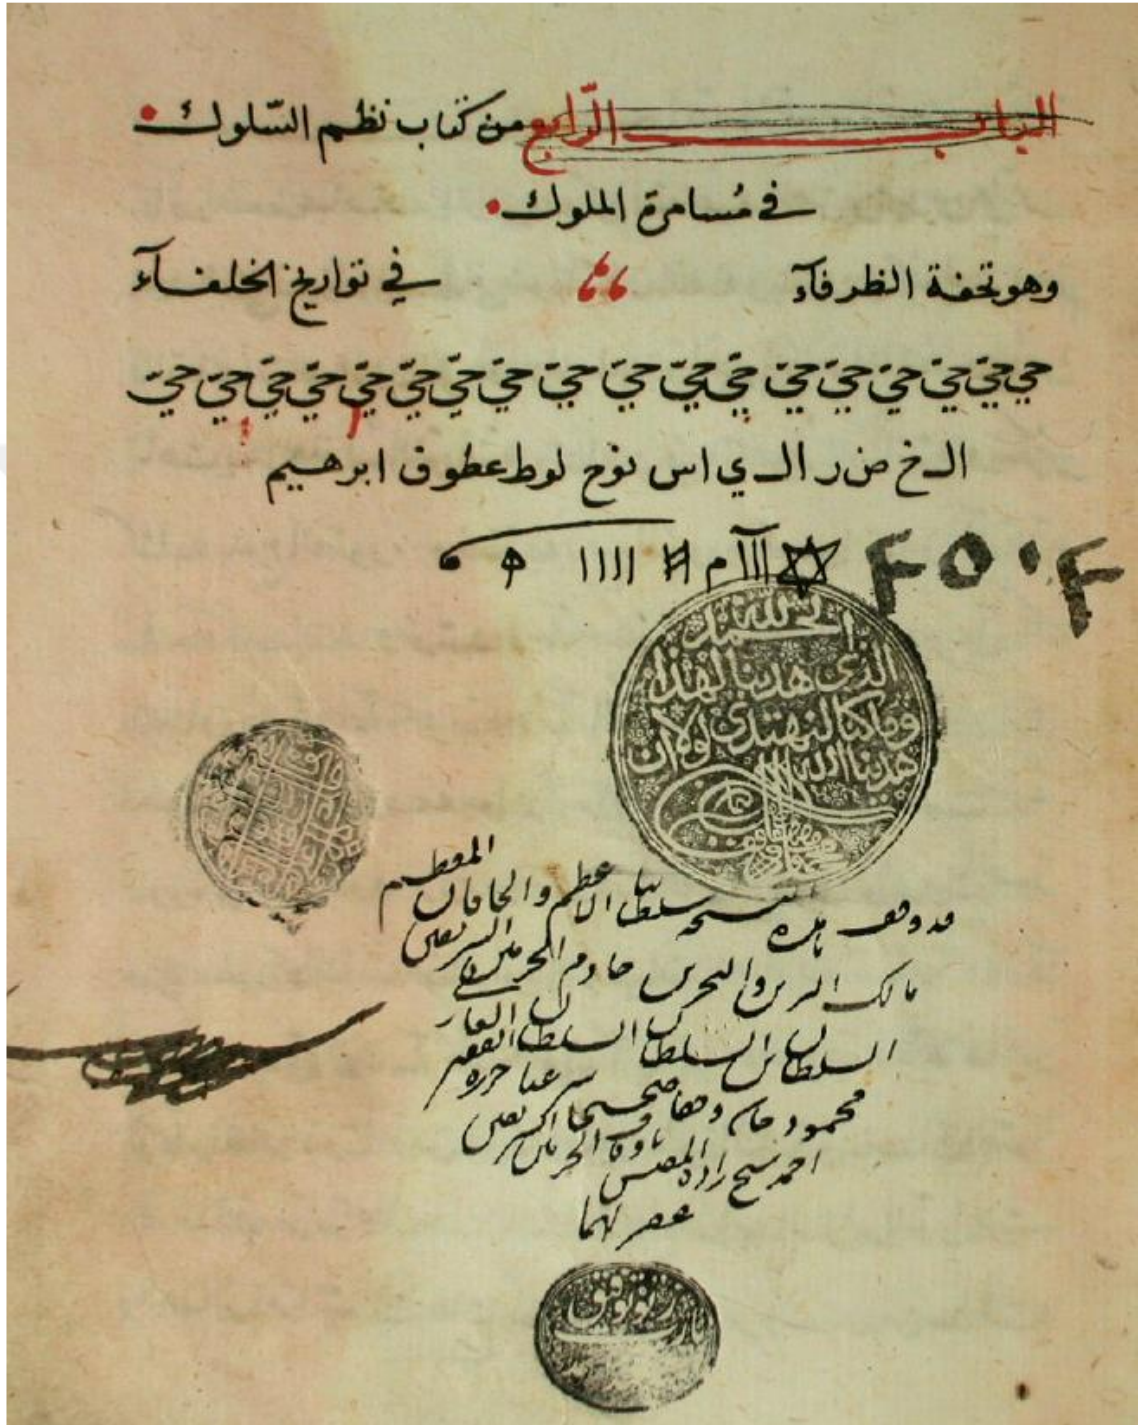 الباب الرّابع من كتاب نظم السّلوك
في مُسامرة الملوك
وهو تحفة الظرفآء في تواريخ الخلفآء
حيّ حيّ حيّ حيّ حيّ حيّ حيّ حيّ حيّ حيّ حيّ حيّ حيّ حيّ حيّ حيّ حيّ حيّ
ال خ ض ر ال ي اس نوح لوط عطوف ابرهيم
۴٥٠۴
الحمد لله
الذي هدينا لهذا
وما كنا لنهتدي لولا ان
هدينا الله
قد وقف هذه النسخة سلطاننا الاعظم والخاقان المعظم
مالك البرين والبحرين خادم الحرمين الشريفين
السلطان بن السلطان السلطان الغازي
محمود خان وقفا صحيحا شرعيا حرره الفقير
احمد شيخ زاده المفتش باوقاف الحرمين الشريفين
غفر لهما